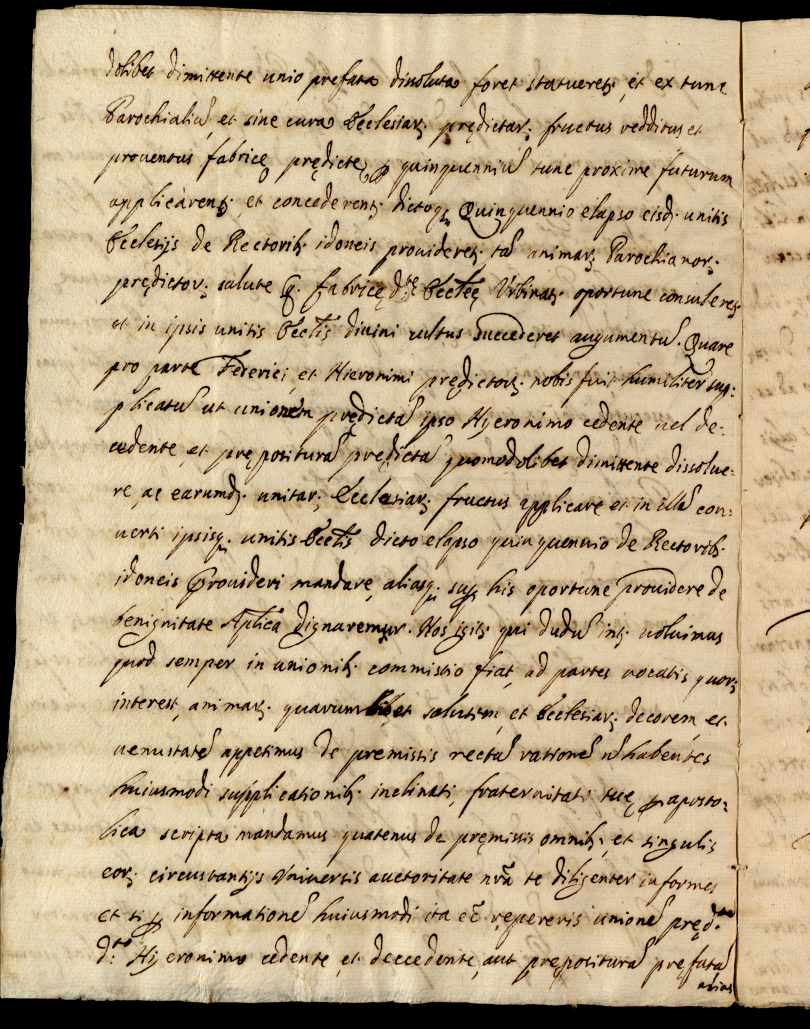 dolibet dimittente unio prefata dissoluta foret statueret; et ex tunc
Parochialiu̅ et sine cura Ecclesiar; prędictar; fructus redditus et
prouentus fabricę prędictę ꝑ quinquenniu̅ tunc proxime futurum
applicarent; et concederent; dictoq; Quinquennio elapso eisd; unitis
Ecclesijs de Rectorib; idoneis prouideret; ta̅ animar; Parochianor;
prędictor; salute q; fabricę d.tę Eccl̅ię Vrbinat; oportune consuleret
et in ipsis unitis Eccl̅ijs diuini cultus succederet augumentu̅. Quare
pro parte Federici et Hieronimi prędictor; nobis fuit humiliter sup:
plicatu̅ ut unionem prędicta̅ ipso Hyeronimo cedente uel de:
cedente et prępositura̅ prędicta̅ quomodolibet dimittente dissolue:
re, ac earumd; unitar; Ecclesiar; fructus applicare et in illa̅ con:
uerti ipsisq; unitis Eccl̅ijs dicto elapso quinquennio de Rectorib;
idoneis prouideri mandare, aliasq; sup his oportune prouidere de
benignitate Ap̅lica dignaremur. Nos igit; qui dudu̅ int; uoluimus
quod semper in unionib; commissio fiat, ad partes uocatis quor;
interest, animar; quarumlibet salutem, et Ecclesiar; decorem et
uenustate̅ appetimus de premissis recta̅ ratione̅ n̅ habentes
huiusmodi supplicationib; inclinati, fraternitati tuę ꝑ aposto:
lica scripta mandamus quatenus de pręmissis omnib; et singulis
eor; circumstantijs Vniuersis auctoritate nr̅a te diligenter informes
et si ꝑ informatione̅ huiusmodi ita ee̅ repereris unione̅ pręd.tam
d:to Hyeronimo cedente et deccedente, aut prępositura̅ pręfata̅